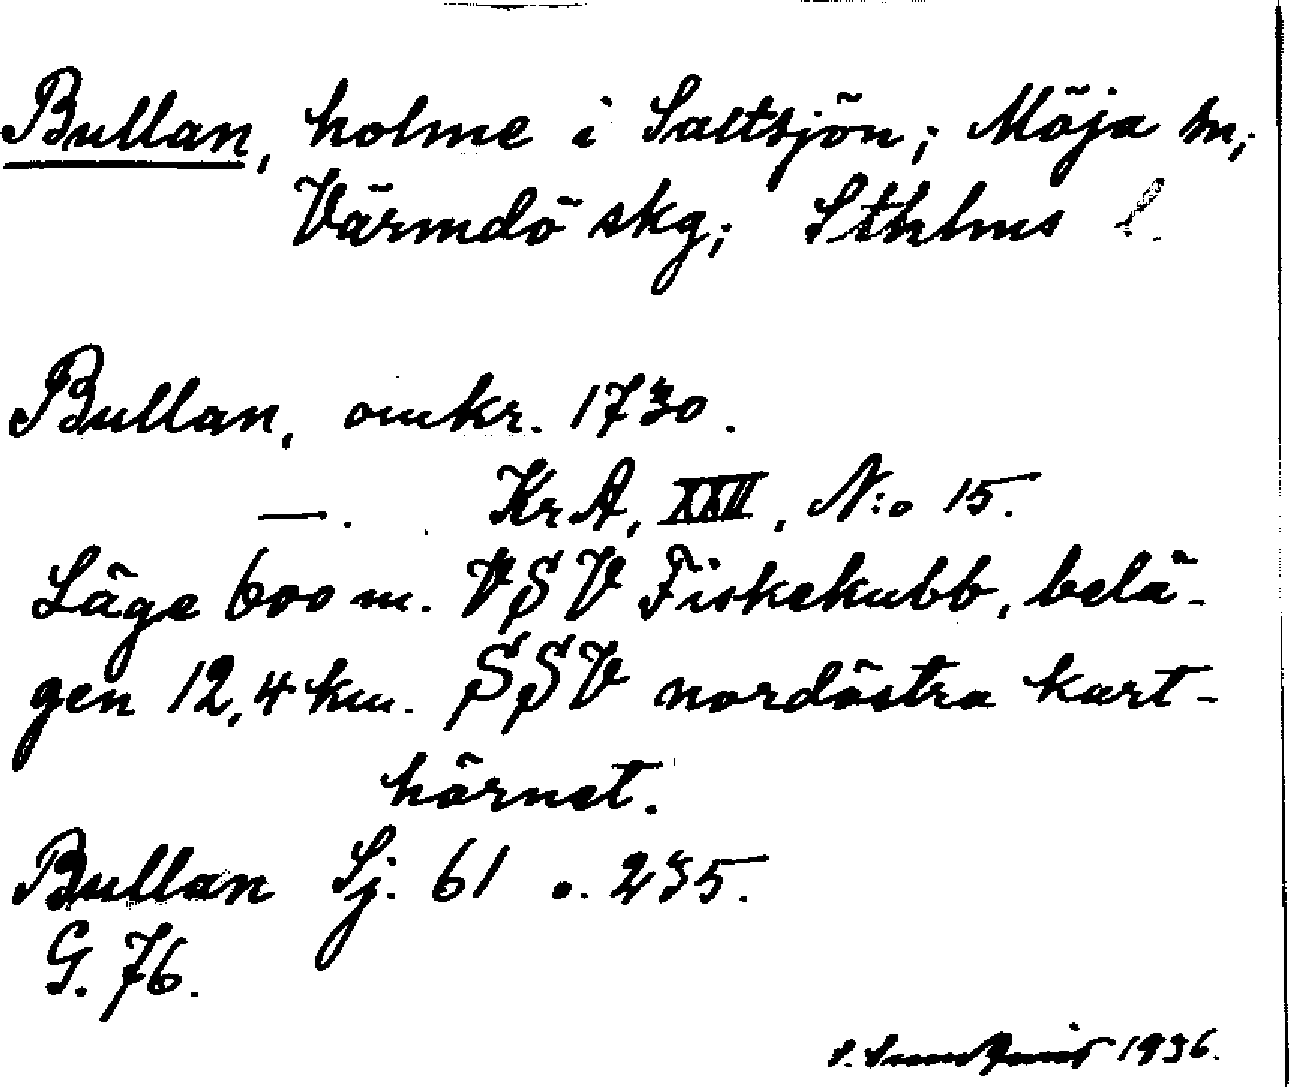 Bullan, holme i Saltsjön; Möja sn;
Värmdö skg; Sthlms l.
Bullan, omkr. 1730.
—. KrA, XXII, N:o 15.
Läge 600 m. VSV Fiskekubb, belä-
gen 12,4 km. SSV nordöstra kart-
hörnet.
Bullan Sj. 61 o. 235.
G. 76.
1936.